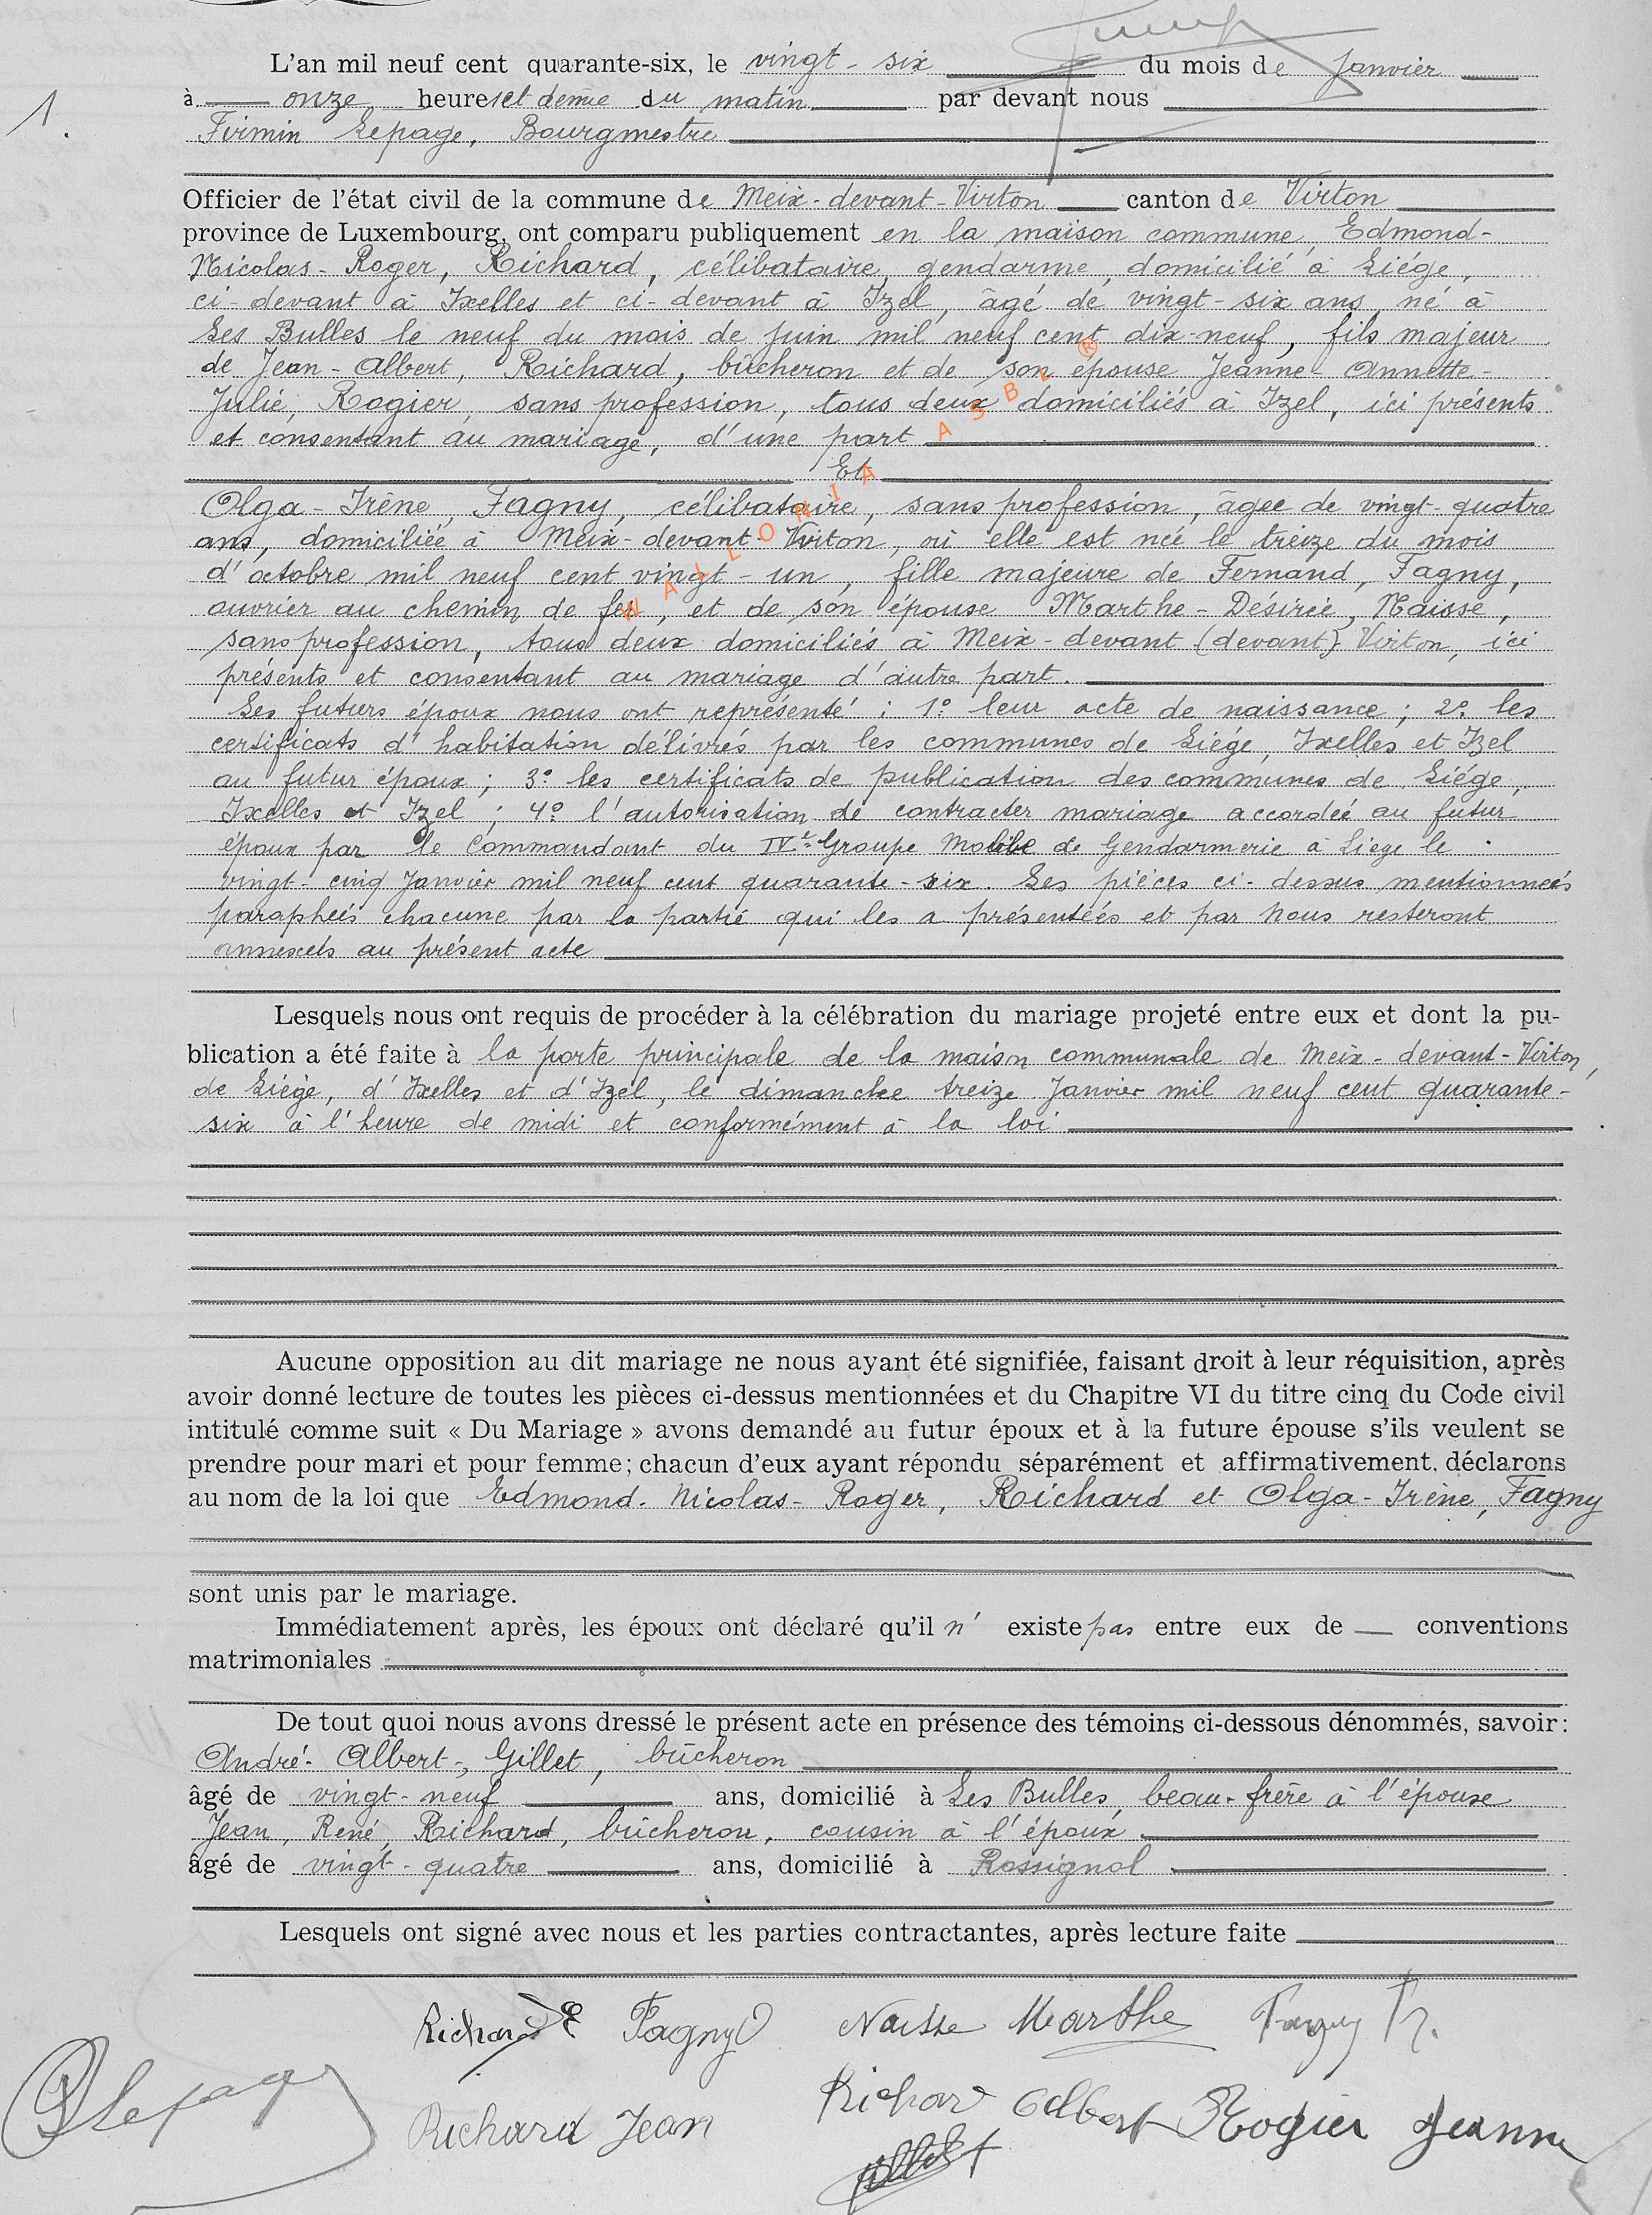 L'an mil neuf cent quarante-six, le vingt-six du mois de Janvier
1.
à onze heures et demie du matin par devant nous
Firmin Lepage, Bourgmestre
Officier de l'état civil de la commune de Meix-devant-Virton canton de Virton
province de Luxembourg, ont comparu publiquement en la maison commune, Edmond-
Nicolas-Roger, Richard, célibataire, gendarme, domicilié à Liége,
ci-devant à Ixelles et ci-devant à Izel, âgé de vingt-six ans, né à
Les Bulles le neuf du mois de juin mil neuf cent dix-neuf, fils majeur
de Jean-Albert, Richard, bûcheron et de son épouse Jeanne-Annette-
Julie, Rogier, sans profession, tous deux domiciliés à Izel, ici présents
et consentant au mariage, d'une part
Et
Olga-Irène, Fagny, célibataire, sans profession, âgée de vingt-quatre
ans, domiciliée à Meix-devant-Virton, où elle est née le treize du mois
d'octobre mil neuf cent vingt-un, fille majeure de Fernand, Fagny,
ouvrier au chemin de fer, et de son épouse Marthe-Désirée, Naisse,
sans profession, tous deux domiciliés à Meix-devant (devant) Virton, ici
présents et consentant au mariage d'autre part.
Les futurs époux nous ont représenté : 1° leur acte de naissance ; 2° les
certificats d'habitation délivrés par les communes de Liége, Ixelles et Izel
au futur époux ; 3° les certificats de publication des communes de Liége,
Ixelles et Izel ; 4° l'autorisation de contracter mariage accordée au futur
époux par le Commandant du IVe Groupe Mobile de Gendarmerie à Liege le
vingt-cinq Janvier mil neuf cent quarante-six. Les pièces ci-dessus mentionnées
paraphées chacune par la partie qui les a présentées et par Nous resteront
annexées au présent acte
WALLONIA ASBL ®
Lesquels nous ont requis de procéder à la célébration du mariage projeté entre eux et dont la pu-
blication a été faite à la porte principale de la maison communale de Meix-devant-Virton,
de Liége, d'Ixelles et d'Izel, le dimanche treize Janvier mil neuf cent quarante-
six à l'heure de midi et conformément à la loi
Aucune opposition au dit mariage ne nous ayant été signifiée, faisant droit à leur réquisition, après
avoir donné lecture de toutes les pièces ci-dessus mentionnées et du Chapitre VI du titre cinq du Code civil
intitulé comme suit « Du Mariage » avons demandé au futur époux et à la future épouse s'ils veulent se
prendre pour mari et pour femme; chacun d'eux ayant répondu séparément et affirmativement, déclarons
au nom de la loi que Edmond-Nicolas-Roger, Richard et Olga-Irène, Fagny
sont unis par le mariage.
Immédiatement après, les époux ont déclaré qu'il n' existe pas entre eux de — conventions
matrimoniales
De tout quoi nous avons dressé le présent acte en présence des témoins ci-dessous dénommés, savoir:
André-Albert-, Gillet, bûcheron
âgé de vingt-neuf ans, domicilié à Les Bulles, beau-frère à l'épouse
Jean, René, Richard, bûcheron, cousin à l'époux
âgé de vingt-quatre ans, domicilié à Rossignol
Lesquels ont signé avec nous et les parties contractantes, après lecture faite
Richard E Fagny O Naisse Marthe Fagny F.
Lepage Richard Jean Richard Albert Rogier Jeanne
Gillet